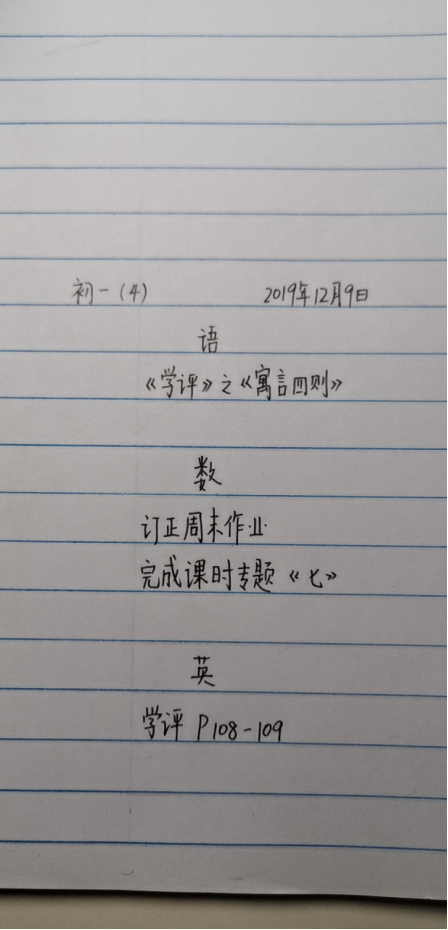 初一(4) 2019年12月9日
语
《学评》之《寓言四则》
数
订正周末作业
完成课时专题《七》
英
学评 P108-109